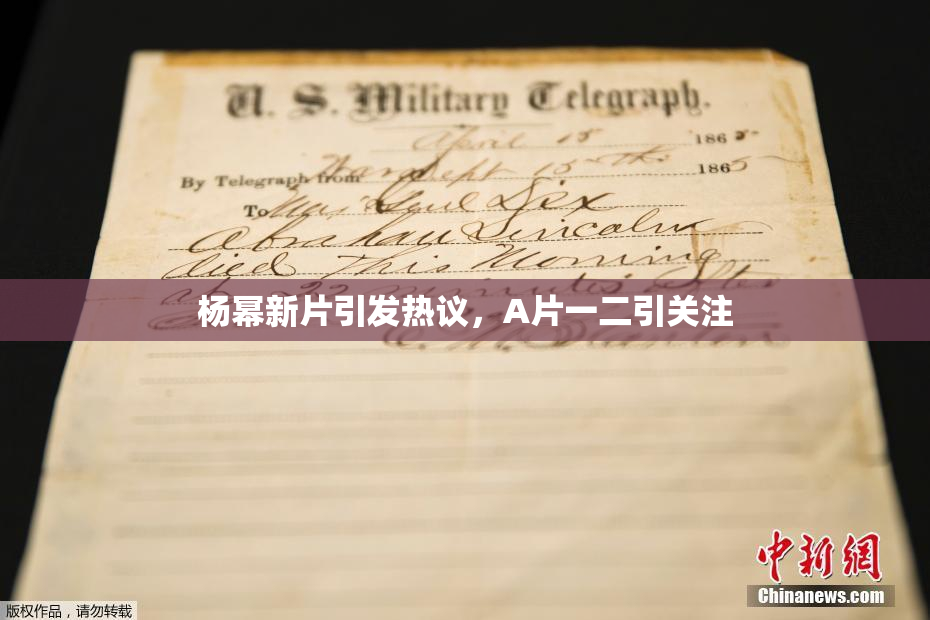 U. S. Military Telegraph.
April 15 1865
By Telegraph from War Dept 15th 1865
To Maj Genl Dix
Abraham Lincoln
died This Morning
at 22 minutes after
杨幂新片引发热议，A片一二引关注
E. M. Stanton
中新网
Chinanews.com
版权作品，请勿转载